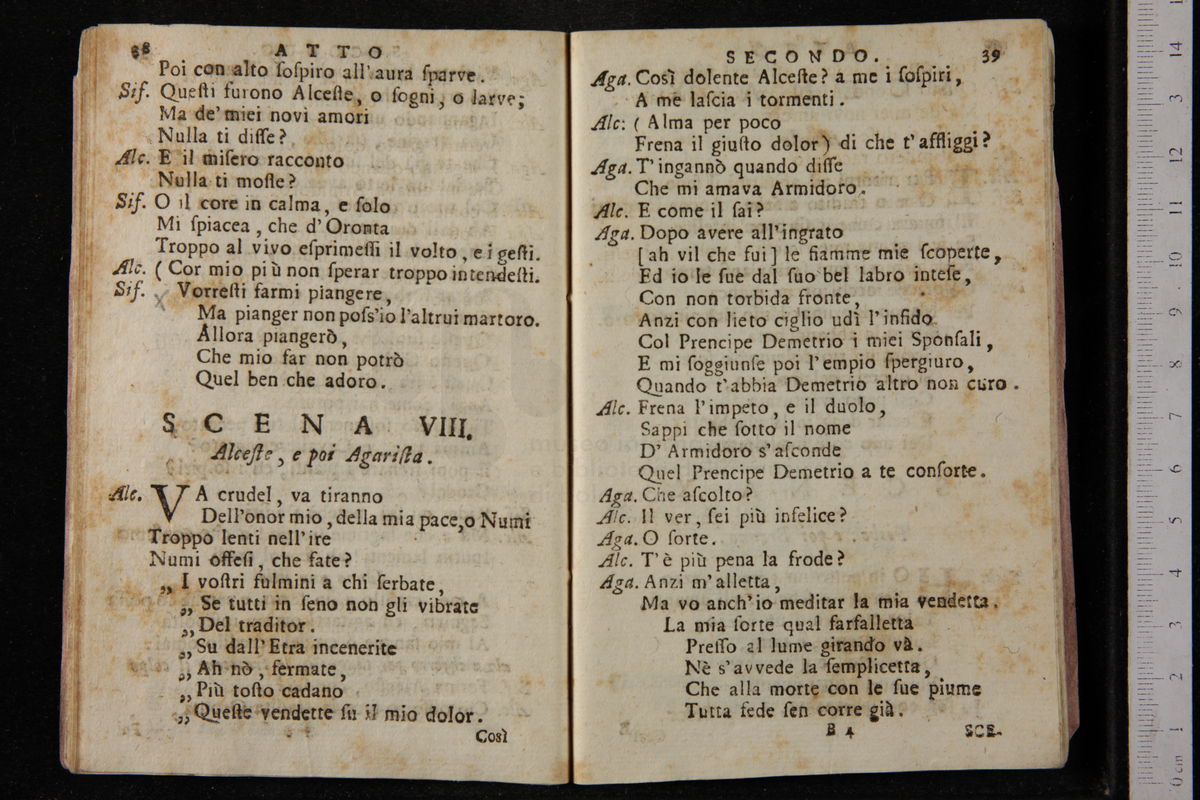 38 ATTO
Poi con alto ſoſpiro all'aura ſparve.
Sif. Queſti furono Alceſte, o ſogni, o larve;
Ma de' miei novi amori
Nulla ti diſſe?
Alc. E il miſero racconto
Nulla ti moſſe?
Sif. O il core in calma, e ſolo
Mi ſpiacea, che d'Oronta
Troppo al vivo eſprimeſſi il volto, e i geſti.
Alc. ( Cor mio più non ſperar troppo intendeſti.
Sif. Vorreſti farmi piangere,
Ma pianger non poſs'io l'altrui martoro.
Allora piangerò,
Che mio far non potrò
Quel ben che adoro.
SCENA VIII.
Alceſte, e poi Agariſta.
Alc. VA crudel, va tiranno
Dell'onor mio, della mia pace, o Numi
Troppo lenti nell'ire
Numi offeſi, che fate?
„ I voſtri fulmini a chi ſerbate,
„ Se tutti in ſeno non gli vibrate
„ Del traditor.
„ Su dall'Etra incenerite
„ Ah nò, fermate,
„ Più toſto cadano
„ Queſte vendette ſu il mio dolor.
Così
SECONDO. 39
Aga. Così dolente Alceſte? a me i ſoſpiri,
A me laſcia i tormenti.
Alc: ( Alma per poco
Frena il giuſto dolor) di che t'affliggi?
Aga. T'ingannò quando diſſe
Che mi amava Armidoro.
Alc. E come il ſai?
Aga. Dopo avere all'ingrato
[ah vil che fui] le fiamme mie ſcoperte,
Ed io le ſue dal ſuo bel labro inteſe,
Con non torbida fronte,
Anzi con lieto ciglio udì l'infido
Col Prencipe Demetrio i miei Sponſali,
E mi ſoggiunſe poi l'empio ſpergiuro,
Quando t'abbia Demetrio altro non curo.
Alc. Frena l'impeto, e il duolo,
Sappi che ſotto il nome
D'Armidoro s'aſconde
Quel Prencipe Demetrio a te conſorte.
Aga. Che aſcolto?
Alc. Il ver, ſei più infelice?
Aga. O ſorte.
Alc. T'è più pena la frode?
Aga. Anzi m'alletta,
Ma vo anch'io meditar la mia vendetta.
La mia ſorte qual farfalletta
Preſſo al lume girando và.
Nè s'avvede la ſemplicetta,
Che alla morte con le ſue piume
Tutta fede ſen corre già.
B 4 SCE-